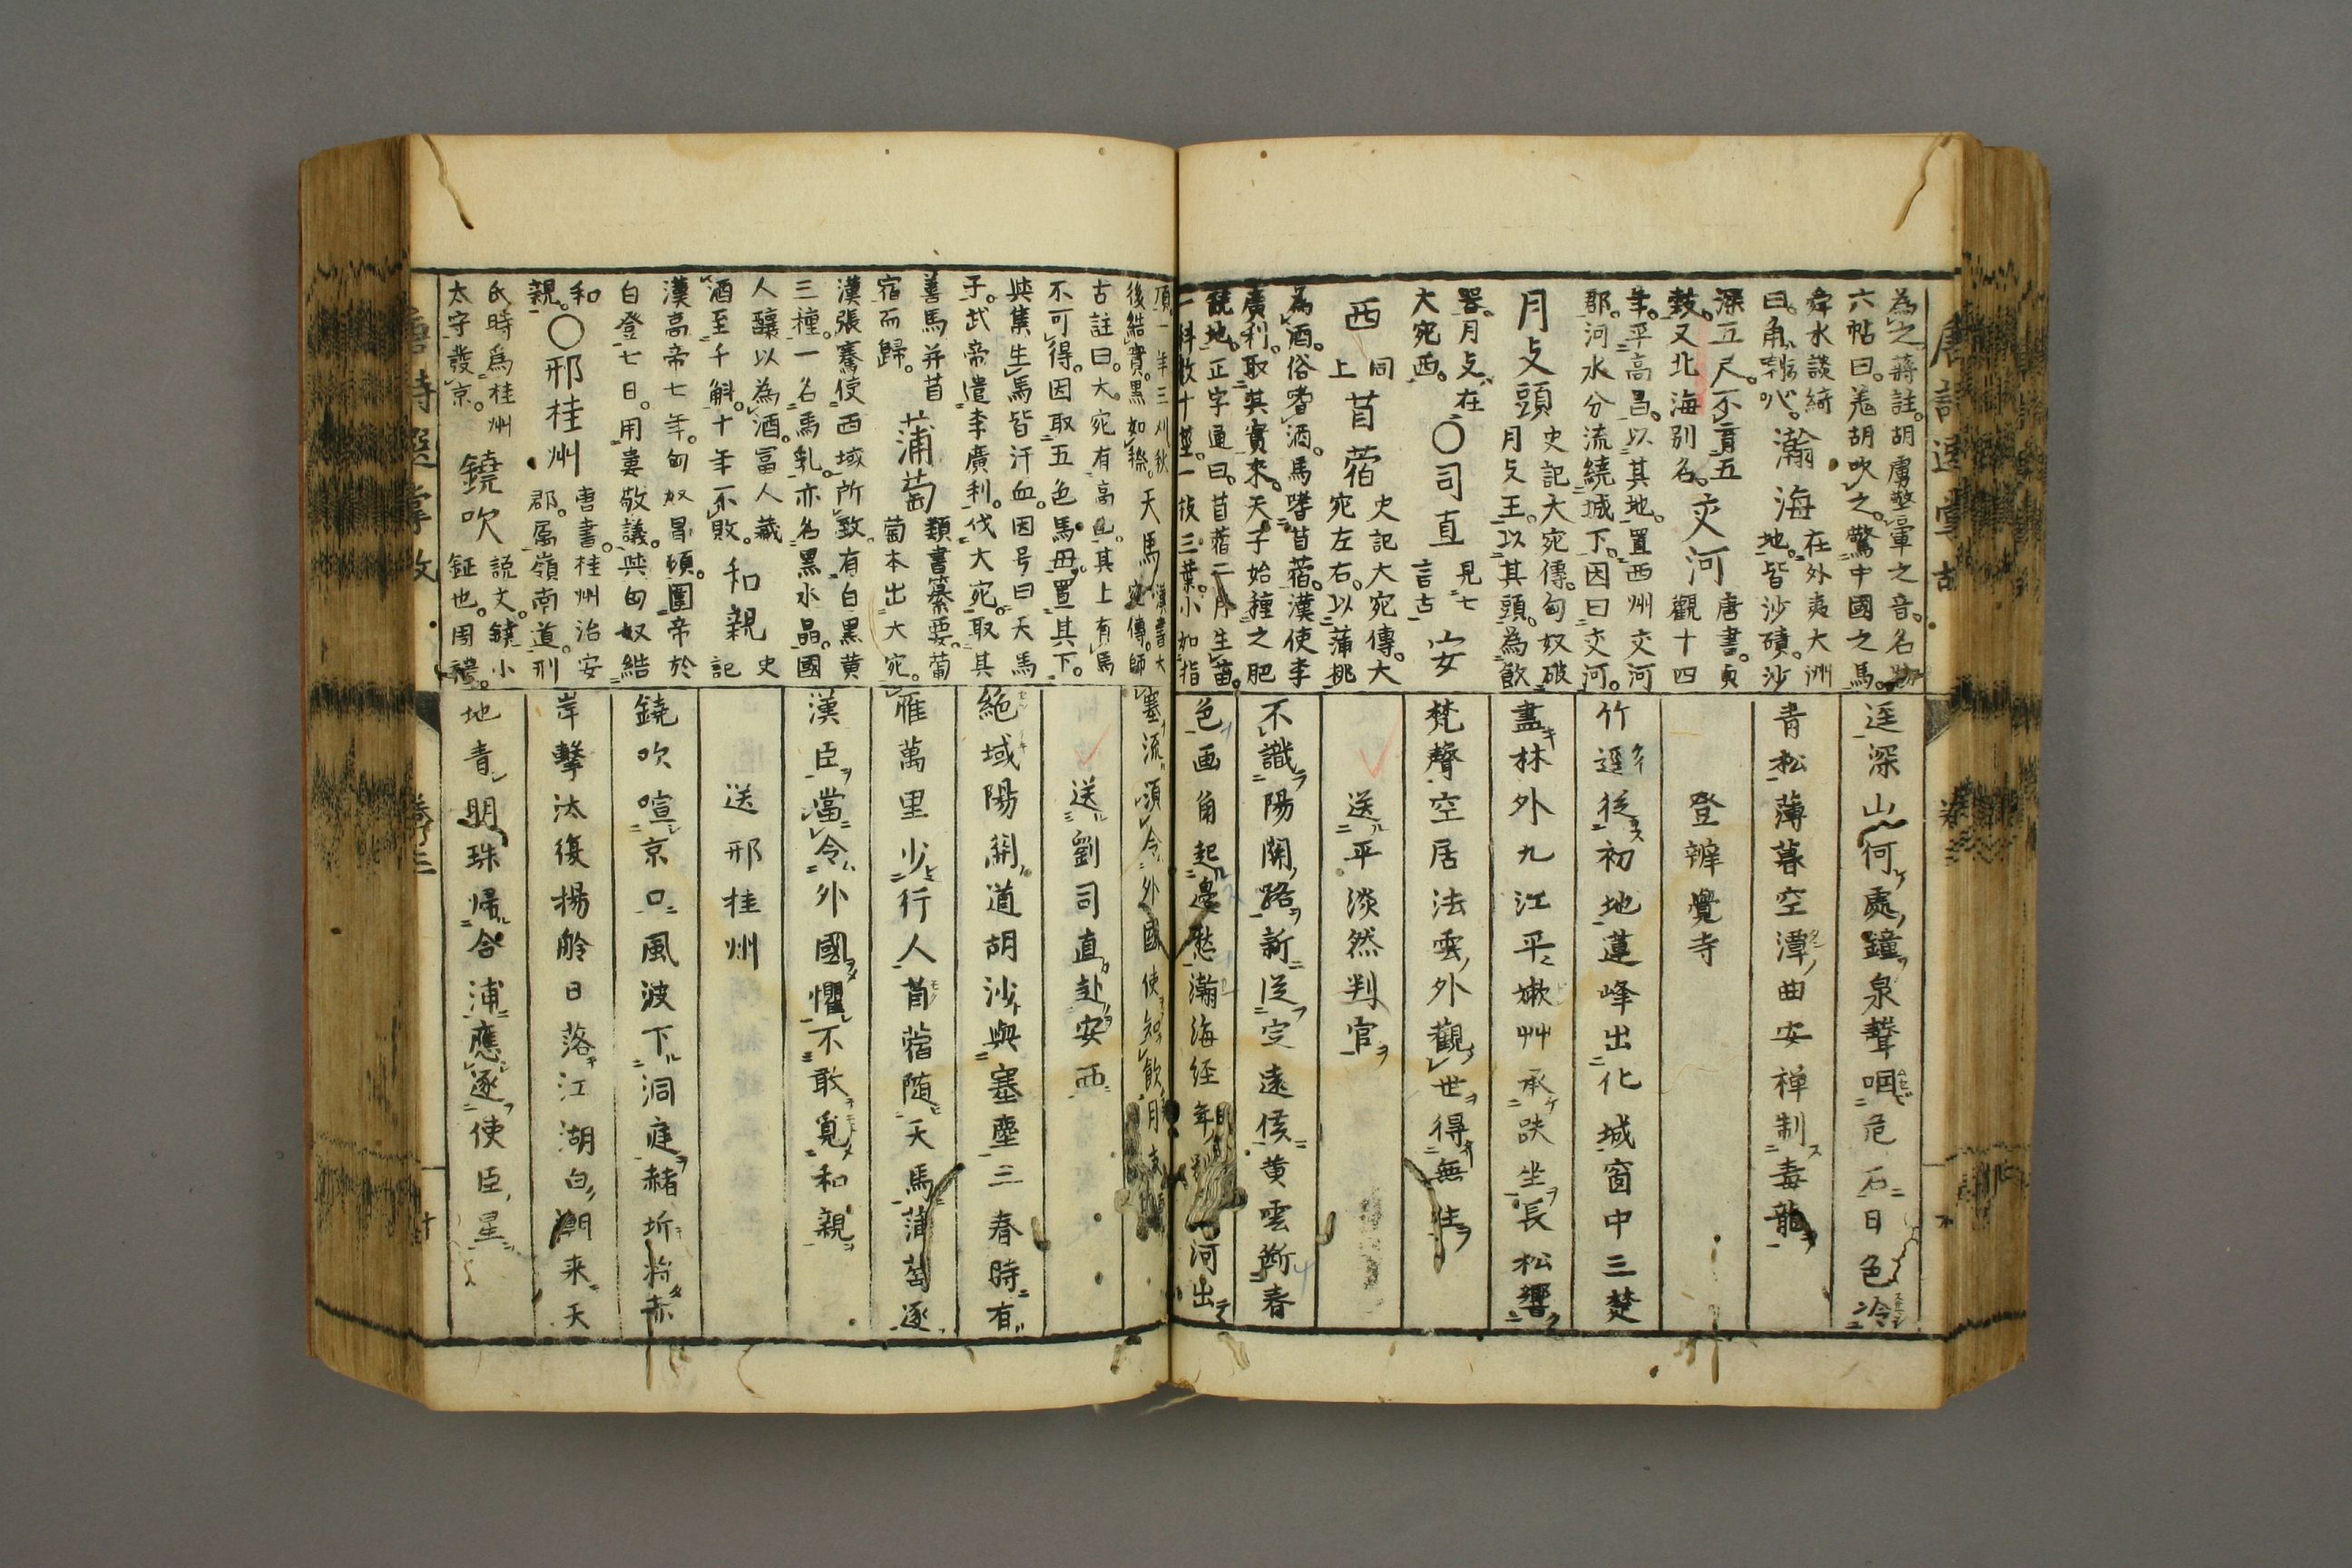 為之蔣註胡虜警軍之音名物
六帖曰羗胡吹之驚中國之馬
舜水談綺
曰角喇叭
瀚海
在外夷大洲
地皆沙磧沙
深五尺不育五
穀又北海別名
交河
唐書貞
觀十四
年平高昌以其地置西州交河
郡河水分流繞城下因曰交河
月攴頭
史記大宛傳匈奴破
月攴王以其頭為飲
器月攴在
大宛西
○司直
見七
言古
安
西
同
上
苜蓿
史記大宛傳大
宛左右以蒲桃
為酒俗嗜酒馬嗜苜蓿漢使李
廣利取其實來天子始種之肥
饒地正字通曰苜蓿二月生苗
一科數十莖一枝三葉小如指
逕深山何處鐘泉聲咽危石日色冷
青松薄暮空潭曲安禅制毒龍
登辨覺寺
竹逕従初地蓮峰出化城窗中三楚
盡林外九江平嫩艸承趺坐長松響
梵聲空居法雲外觀世得無生
送平淡然判官
不識陽關路新従定遠侯黄雲断春
色画角起邊愁瀚海経年別交河出
頂一年三刈秋
後結實黒如穄
天馬
漢書大
宛傳師
古註曰大宛有高山其上有馬
不可得因取五色馬母置其下
與集生馬皆汗血因号曰天馬
子武帝遣李廣利伐大宛取其
善馬并苜
宿而歸
蒲萄
類書纂要葡
萄本出大宛
漢張騫使西域所致有白黒黄
三種一名馬乳亦名黒水晶國
人釀以為酒冨人蔵
酒至千斛十年不敗
和親
史
記
漢高帝七年匈奴冒頓圍帝於
白登七日用婁敬議與匈奴結
和
親
○邢桂州
唐書桂州治安
郡属嶺南道刑
氏時爲桂州
太守發京
鐃吹
説文鐃小
鉦也周禮
塞流須令外國使知飲月支頭
送劉司直赴安西
絶域陽關道胡沙與塞塵三春時有
雁萬里少行人苜蓿随天馬蒲萄逐
漢臣當令外國懼不敢覓和親
送邢桂州
鐃吹喧京口風波下洞庭赭圻將赤
岸擊汰復揚舲日落江湖白潮来天
地青明珠帰合浦應逐使臣星